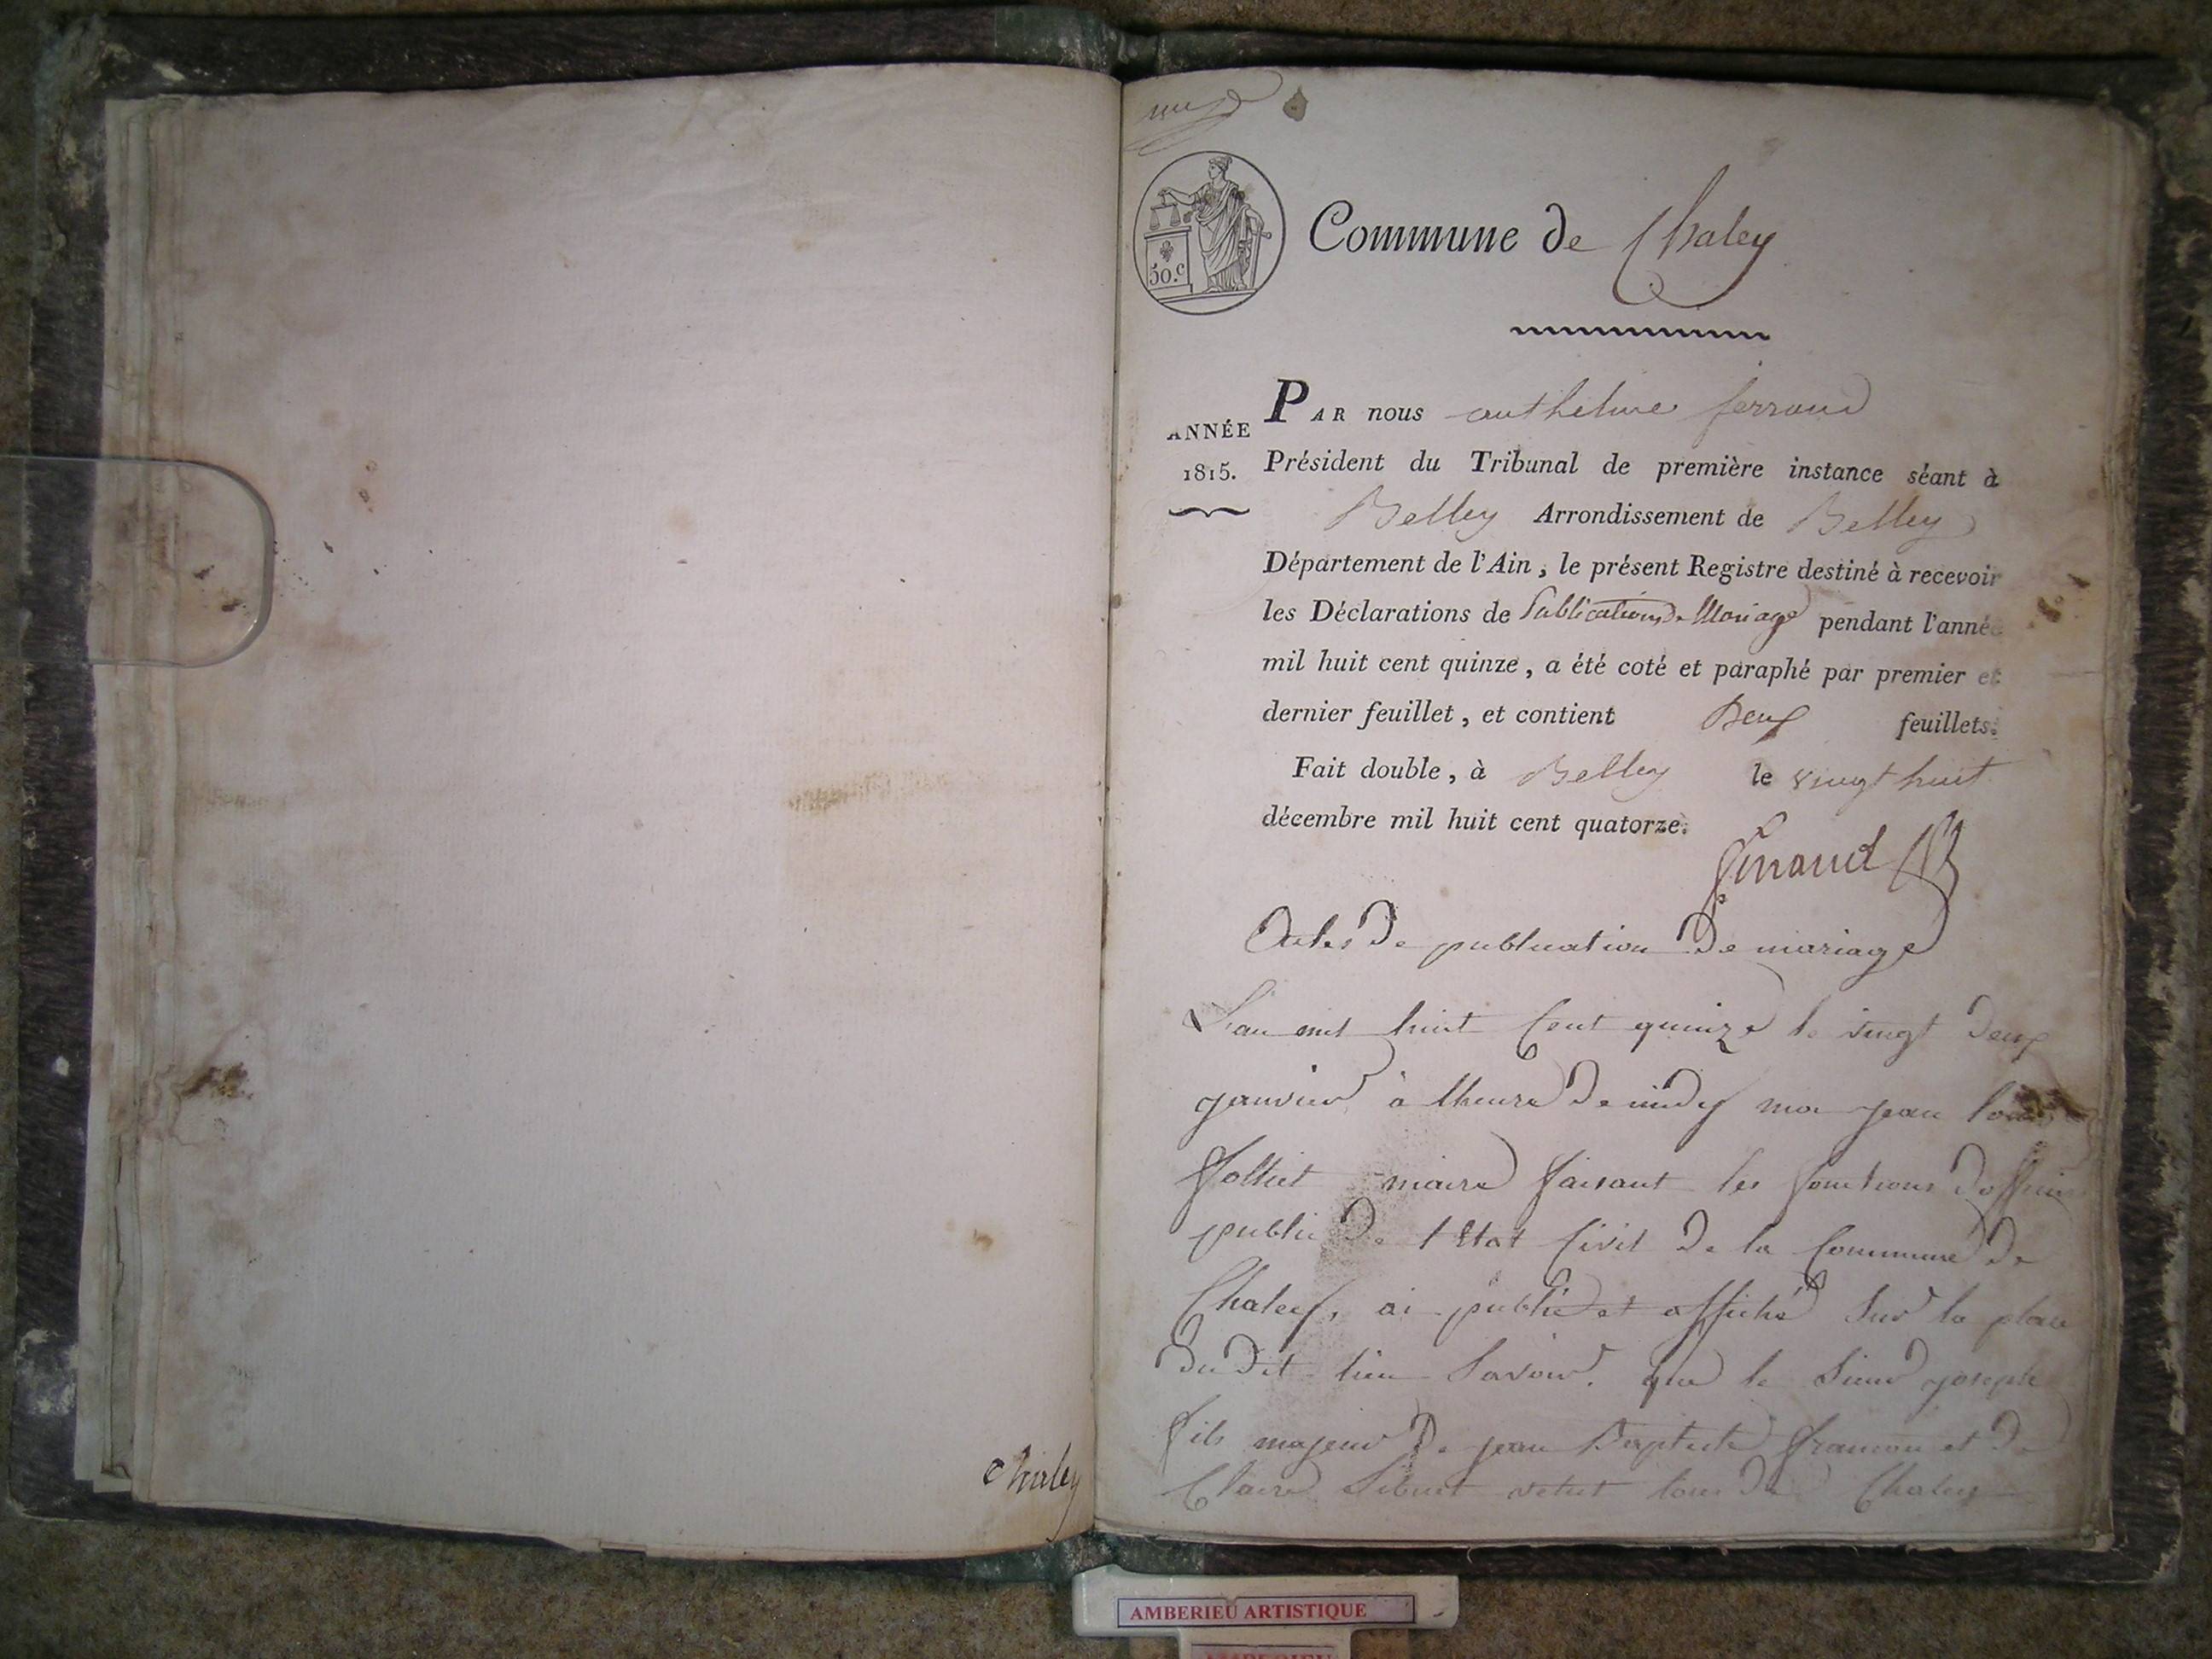 Chaley
50.c
Commune de Chaley
ANNÉE
1815.
PAR nous anthelme ferrand
Président du Tribunal de première instance séant à
Belley Arrondissement de Belley
Département de l'Ain, le présent Registre destiné à recevoir
les Déclarations de Publications de Mariage pendant l'année
mil huit cent quinze, a été coté et paraphé par premier et
dernier feuillet, et contient Deux feuillets.
Fait double, à Belley le vingt huit
décembre mil huit cent quatorze.
ferrand
Actes De publication De mariage
L'an mil huit Cent quinze le vingt Deux
janvier à lheure De midy moi jean louis
folliet maire faisant les fonctions Dofficier
public De l'Etat Civil De la Commune De
Chaley, ai publié et affiché Sur la place
Du Dit lieu Savoir. que le Sieur joseph
fils majeur De jean Baptiste et De
Claire Chaley
AMBERIEU ARTISTIQUE